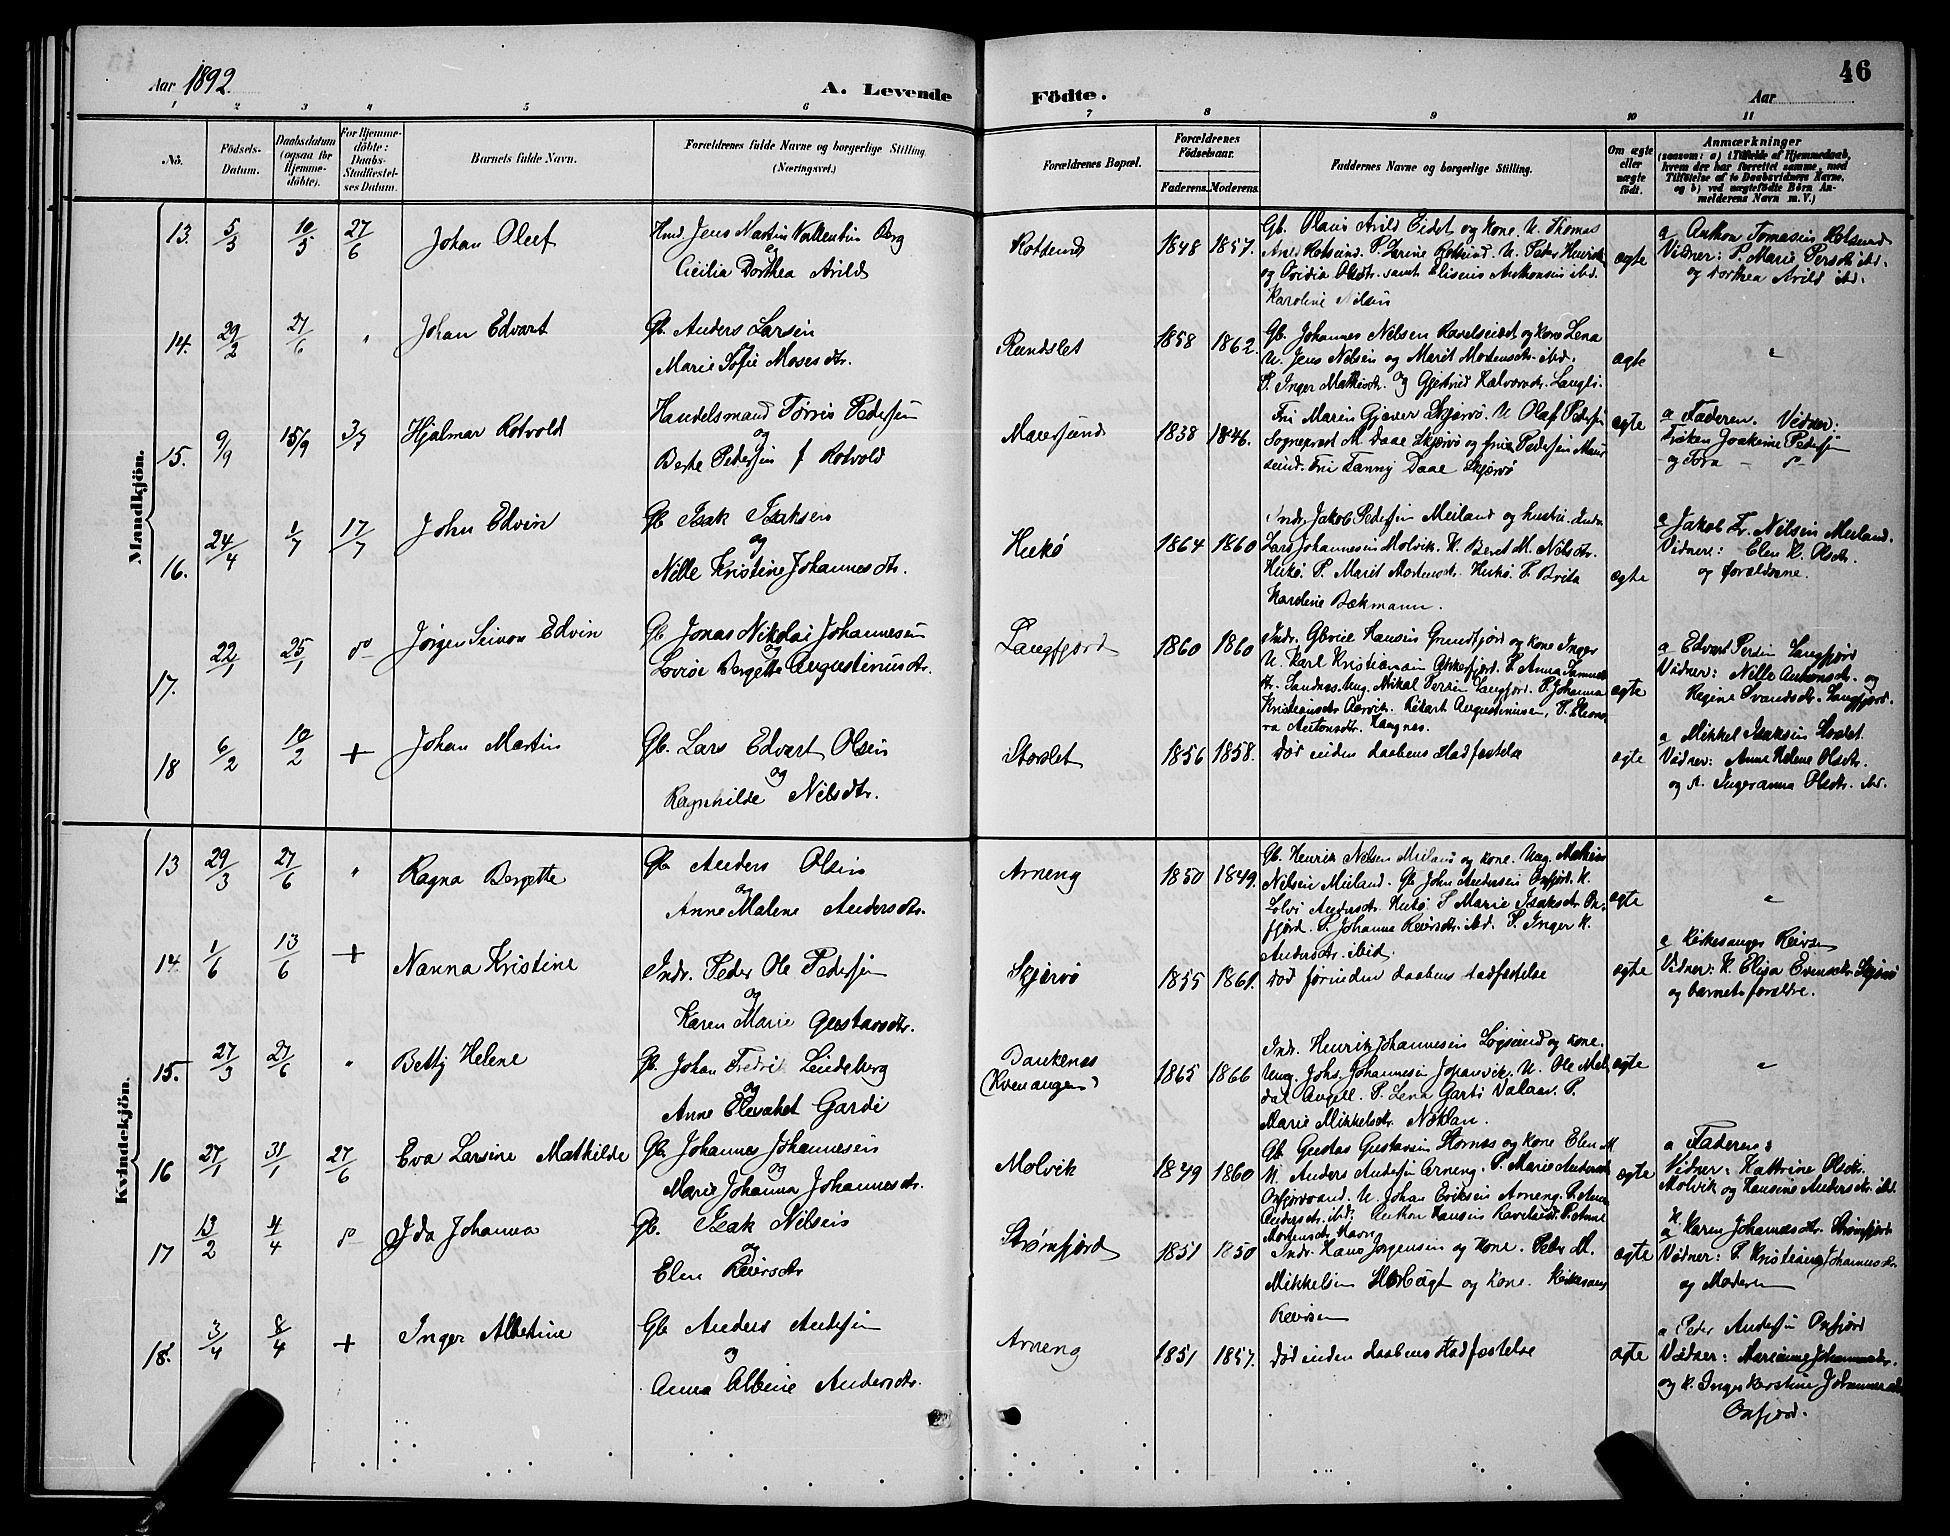 Aar 1892.
A. Levende Födte.
Aar
46
1 2 3 4 5 6 7 8 9 10 11
No.
Födsels-Datum.
Daabsdatum (ogsaa for Hjemme-döbte).
For Hjemme-döbte: Daabs-Stadfæstel-ses Datum.
Barnets fulde Navn.
Forældrenes fulde Navne og borgerlige Stilling (Næringsvei.)
Forældrenes Bopæl.
Forældrenes Födselsaar.
Faderens. Moderens.
Faddernes Navne og borgerlige Stilling.
Om ægte eller uægte födt.
Anmærkninger
(saasom: a) i Tilfælde af Hjemmedaab, hvem der har forrettet samme, med Tilföielse af to Daabsvidners Navne, og b) ved uægtefödte Börn Anmelderens Navn m. V.)
Mandkjön.
13. 5/3 10/5 27/6 Johan Oluf
Hmd. Jens Martin Vallentin Berg
og
Cicilia Dorthea Arild
Rotsund 1848 1857.
Gb. Olaus Arild Eidet og Kone. U. Thomas
Arild Rotsund. P. Larine Rotsund. U. Peder Henrik
og Ovidia Olsdtr. samt Eliseus Antonsen ibd.
Karoline Nilsen
ægte
a Anthon Tomasen Rotsund
Vidner: P. Marie Persdtr ibd.
og Dorthea Arild ibd.
14. 29/2 27/6 " Johan Edvart
Gb. Anders Larsen
og
Marie Sofie Mosesdtr.
Rundslet 1858 1862.
Gb. Johannes Nilsen Ravelseidet og Kone Lena
U. Jens Nilsen og Marit Mortensdtr. ibd.
P. Inger Mathisdtr. og Gjertrud Halvorsdtr. Langli.
ægte "
15. 9/9 15/9 3/7 Hjalmar Rotvold
Handelsmand Törris Pedersen
og
Berte Pedersen f Rotvold
Maursund 1838 1846.
Fru Maren Gjæver Skjervö. U Olaf Pedersen
Sogneprest M. Daae Skjærvö og frue Pedersen Maur
sund. Fru Fanny Daae Skjærvö
ægte
a Faderen. Vidner:
Fröken Joakime Pedersen
og Tora — d°—
16. 24/4 1/7 17/7 John Edvin
Gb Isak Isaksen
og
Nille Kristine Johannesdtr.
Hukö 1864 1860
Indr. Jakob Pedersen Meiland og hustru. Indr
Lars Johannesen Molvik. K. Beret M. Nilsdtr.
Hukö. P. Marit Mortensdtr. Hukö. P. Brita
Karoline Bækmann.
ægte
a Jakob Fr. Nilsen Meiland.
Vidner: Elen K. Olsdtr.
og forældrene.
17. 22/1 25/1 d° Jörgen Simon Edvin
Gb Jonas Nikolai Johannesen
og
Lovise Bergette Augustinusdtr.
Langfjord 1860 1860
Indr. Gbruie Hansen Grundfjord og Kone Inger
U. Karl Kristiansen Akkerfjord. P. Anna Samuels
dtr. Sandnes. Ung. Mikal Persen Langfjord. P. Johanna
Kristiansdtr. Aarvik. Rikart Augustinusen, P. Eleono
ra Antonsdtr. Haugnes.
ægte
a Edvart Persen Langfjord
Vidner: Nille Antonsdtr. og
Regine Svendsdtr. Langfjord.
18 6/2 10/2 + Johan Martin
Gb. Lars Edvart Olsen
og
Ragnhilde Nilsdtr.
Storslet 1856 1858.
död inden daabens stadfæstelse
ægte
a Mikkel Isaksen Storslet.
Vidner: Anne Helene Olsdtr.
og P. Ingeranna Olsdtr. ibd.
Kvindekjön.
13 29/3 27/6 " Ragna Bergette
Gb Anders Olsen
og
Anne Malene Andersdtr.
Arneng 1850 1849.
Gb. Henrik Nilsen Meiland og Kone. Ung. Mathias
Nilsen Meiland. Gb John Andersen Oxfjord. K.
Lovi Andersdtr. Hukö P Marie Isaksdtr. Ox-
fjord. P. Johanna Reiersdtr. ibd. P. Inger K.
Andersdtr. ibid.
ægte "
14 1/6 13/6 + Nanna Kristine
Indr. Peder Ole Pedersen
og
Karen Marie Gustavsdtr.
Skjervö 1855 1861.
död forinden daabens stadfæstelse
ægte
a Kirkesanger Reiersen
Vidner: K. Elisa Evensdtr. Skjervö
og barnets forældre.
15. 27/3 27/6 " Betty Helene
Gb. Johan Fredrik Lindeberg
og
Anne Elisabet Gardi
Baukenes
(Kvenangen) 1865 1866
Indr. Henrik Johannesen Lögsund og Kone.
Ung. Johs. Johannesen Jopanvik. U. Ole Mel-
dal Angell. P. Lena Garti Valaas. P.
Marie Mikkelsdtr. Noklan.
ægte "
16 27/1 31/1 27/6 Eva Larsine Mathilde
Gb Johannes Johannesen
og
Marie Johanna Johannesdtr.
Molvik 1849 1860
Gb. Gustav Gustavsen Stornes og Kone Elen M
U. Anders Andersen Arneng. P. Marie Andersdtr
Oxfjordvand. U. Johan Eriksen Arneng. P. Anna
Andersdtr. ibd. Anthon Hansen Ravelseidet. P. Anne
Mortensdtr. Havn
ægte
a Faderen:
Vidner: Kattrine Olsdtr.
Molvik og Hansine Andersdtr. ibd.
17 13/2 4/4 d° Ida Johanna
Gb. Isak Nilsen
og
Elen Reiersdtr
Strömfjord 1851 1850
Indr. Hans Jörgensen og Kone. Peder M.
Mikkelsen Storbugt og Kone. Kirkesang
Reiersen
ægte
K.
a Karen Johannesdtr. Strömfjord
Vidner: P. Kristiane Johannesdtr
og Moderen
18. 3/4 8/4 + Inger Albertine
Gb Anders Andersen
og
Anna Albine Andersdtr.
Arneng 1851 1857.
död inden daabens stadfæstelse
ægte
a Peder Andersen Oxfjord
Vidner: Marianne Johannesdtr.
og K. Inger Kerstine Johannesdtr
Oxfjord.